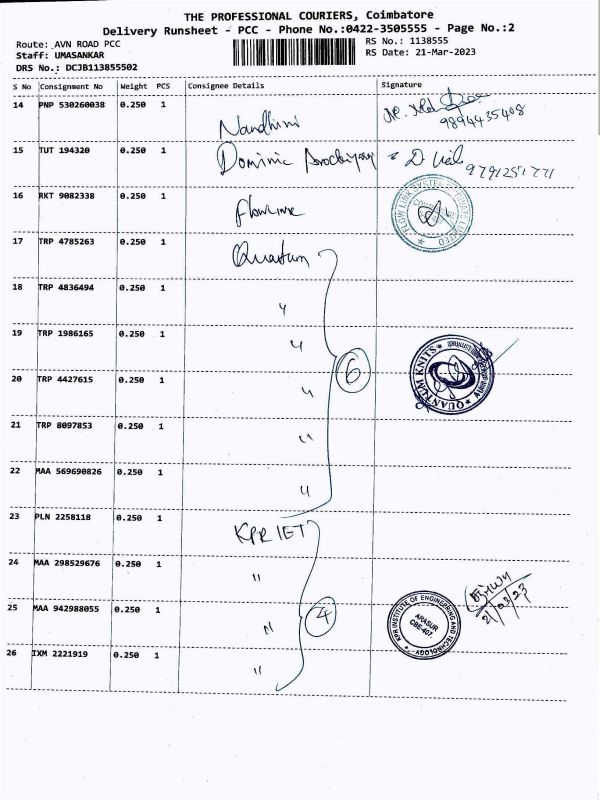 THE PROFESSIONAL COURIERS, Coimbatore
Delivery Runsheet - PCC - Phone No.:0422-3505555 - Page No.:2
Route: AVN ROAD PCC
RS No.: 1138555
Staff: UMASANKAR
RS Date: 21-Mar-2023
DRS No.: DCJB113855502
S No Consignment No Weight PCS Consignee Details Signature
14 PNP 530260038 0.250 1 Nandhini
9894435408
15 TUT 194320 0.250 1 Dominic
9791251771
16 RKT 9082338 0.250 1
FLOW LINK SYSTEM PRIVATE LIMITED
17 TRP 4785263 0.250 1 Quantum
18 TRP 4836494 0.250 1 "
19 TRP 1986165 0.250 1 "
6
QUANTUM KNITS
20 TRP 4427615 0.250 1 "
21 TRP 8097853 0.250 1 "
22 MAA 569690826 0.250 1 "
23 PLN 2258118 0.250 1 KPR IET
24 MAA 298529676 0.250 1 "
25 MAA 942988055 0.250 1 "
4
KPR INSTITUTE OF ENGINEERING AND TECHNOLOGY
ARASUR
CBE-407.
26 IXM 2221919 0.250 1 "